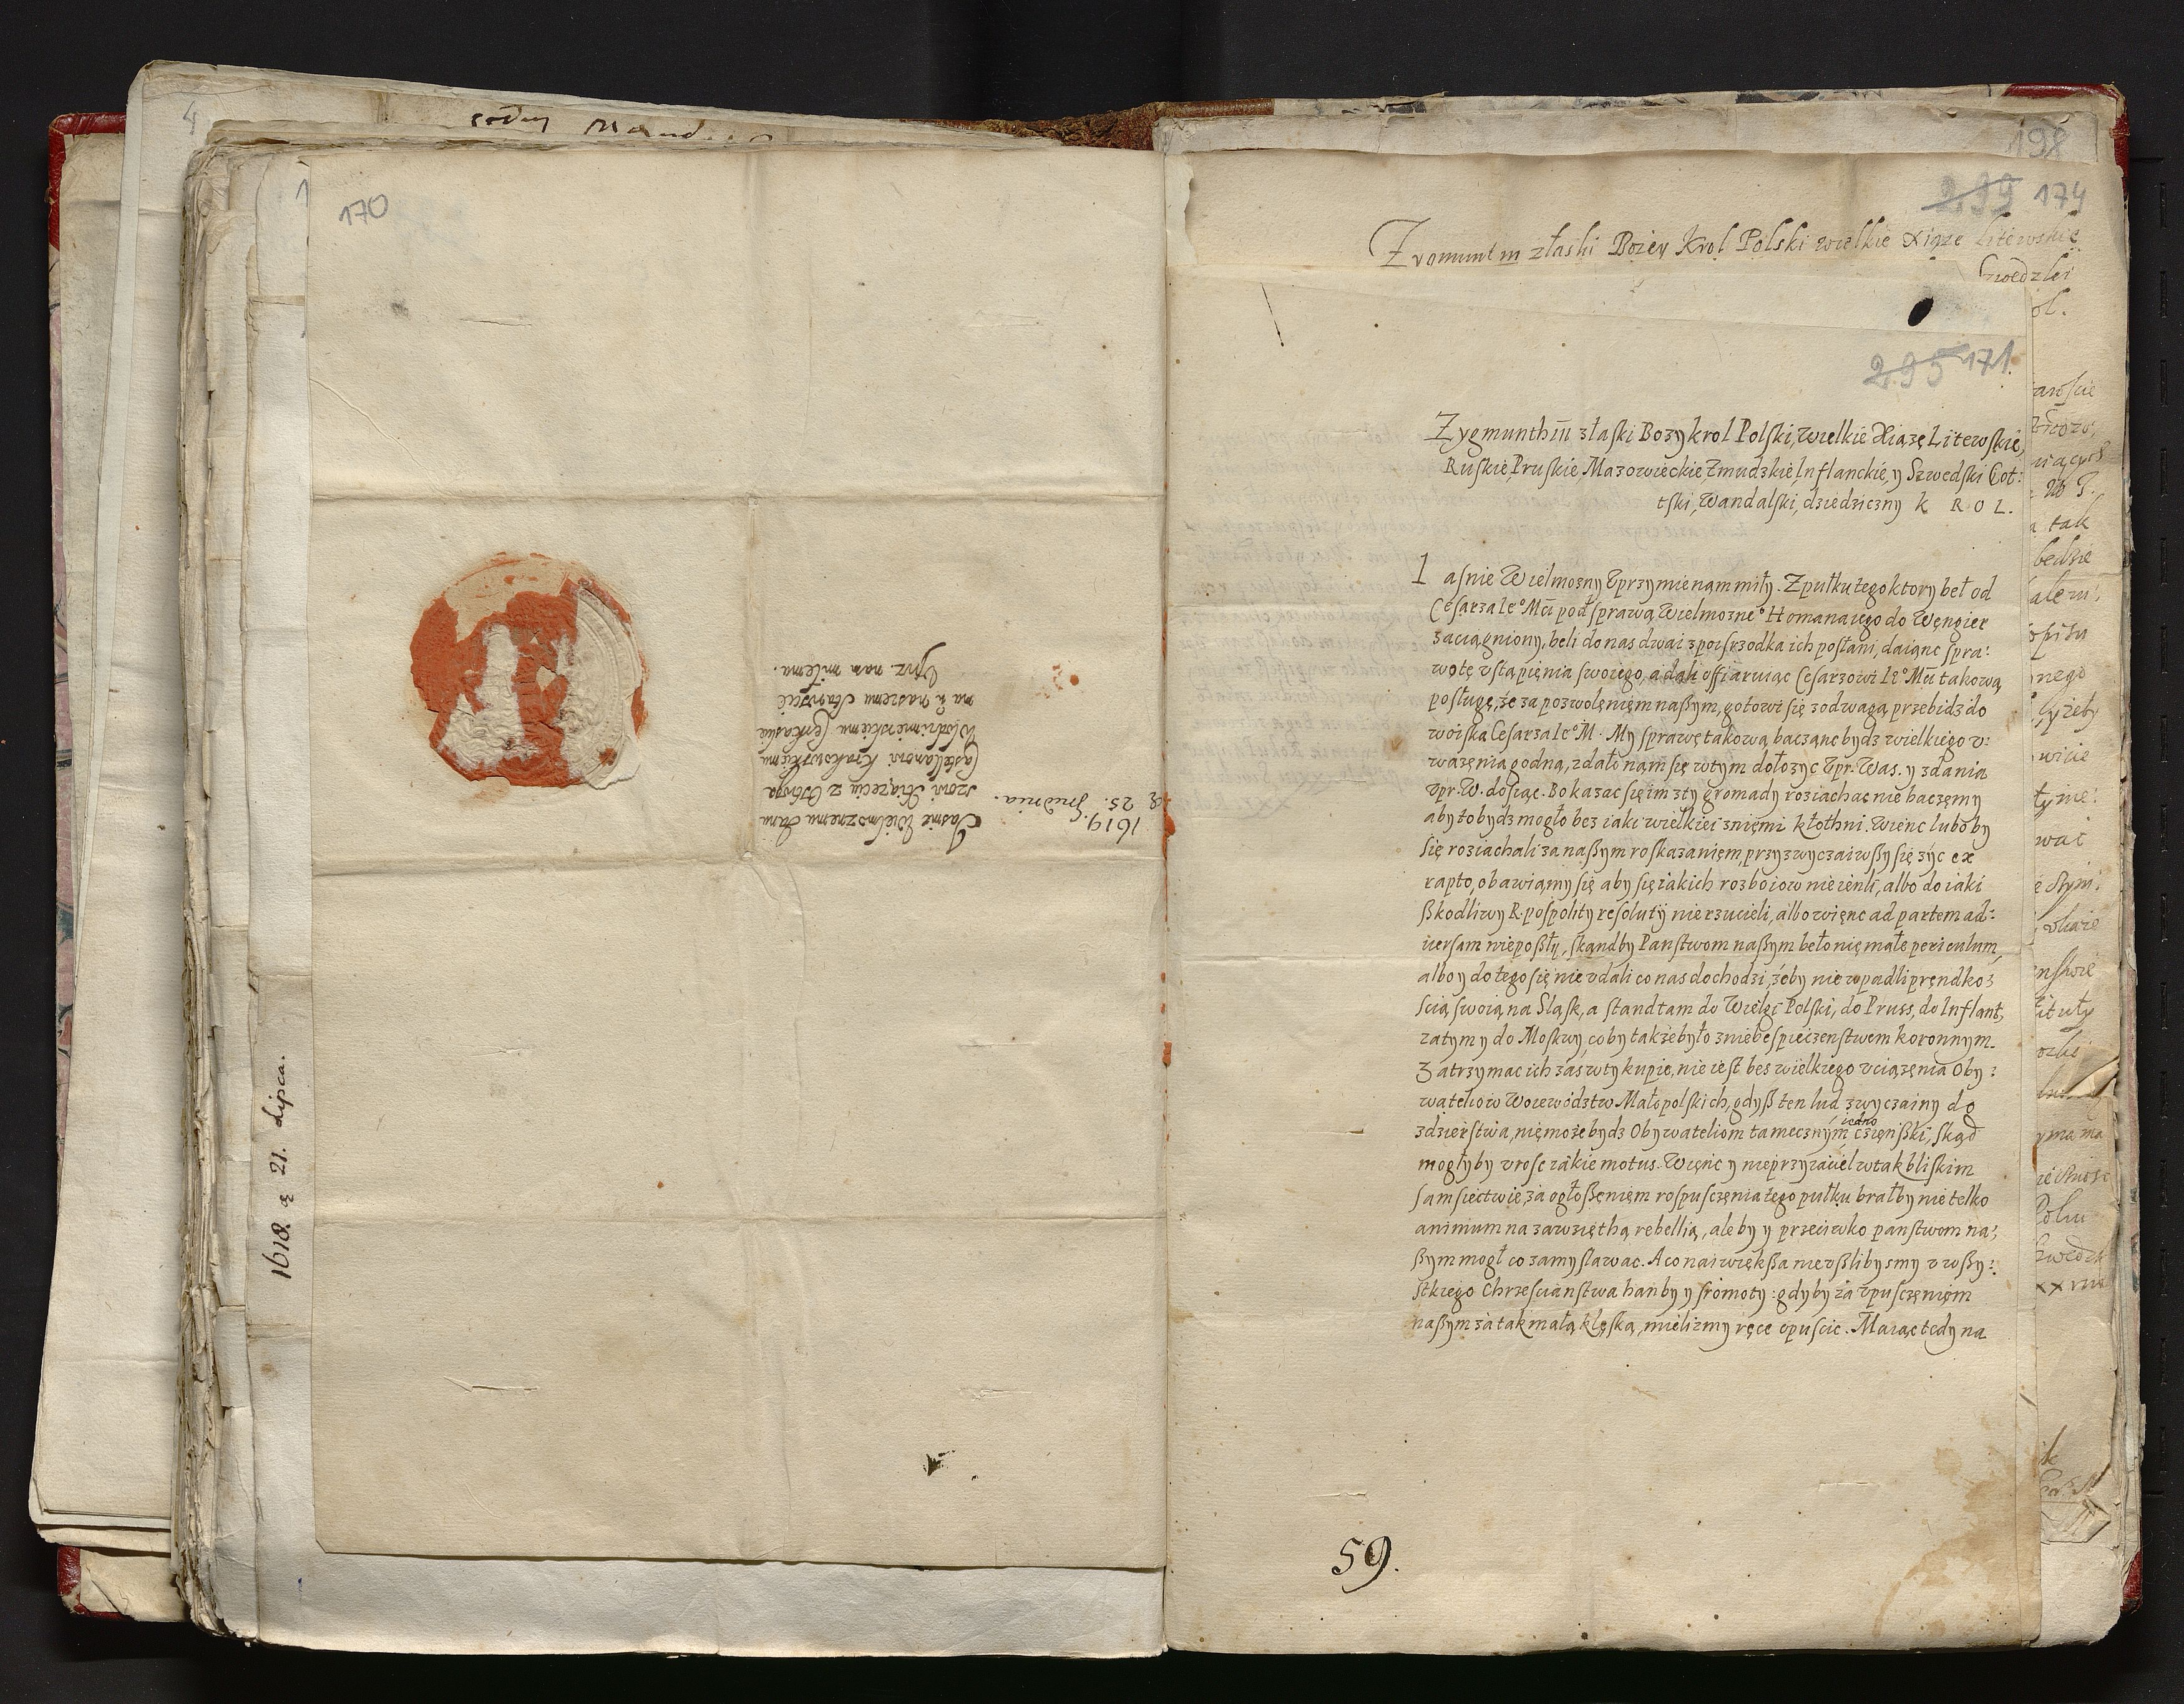 4
170
1
1618. a 21. Lipca.
Jasnie Wielmoznemu Janu
szowi Xiązęciu z Ostroga
Castellanowi Krakowskiemu
Wlodzimirskiemu Cerkaskie
mu & naszemu Staroscie
Uprz. nam milemu.
1619.
a 25. Grudnia.
198
299 174
Zygmunt III złaski Bożey Krol Polski wielkie Xiąże Litewskie
Szwedzki
ol.
295 171.
Zygmunth III złaski Bozy krol Polski, Wielkie Xiązę Litewskie,
Ruskie, Pruskie, Mazowieckie, Zmudzkie, Inflanckie, y Szwedski Got:
tski, Wandalski, dziedziczny K R O L.
Iasnie Wielmozny Vprzymie nąm miły. Z pułku tego ktory beł od
Cesarza Ieº Mći pod sprawą Wielmozneº Homanaiego do Węngier
zaciągniony, beli do nas dwai z posrzodka ich posłani, daiąnc spra:
wotę vstąpięnia swoiego, a dali offiaruiąc Cesarzowi Ieº Mći takową
posługę, że za pozwolęnięm naßym, gotowi się z odwagą przebidz do
woiska Cesarza Ieº M. My sprawę takową bacząnc bydz wielkiego v:
wazęnia godną, zdało nąm się w tym dołozyc Vpr. Was. y zdania
vpr. W. dosiąc. Bo kazac się im z ty gromady roziachac nie baczęmy
aby to bydz mogło bez iaki wielkiei z nięmi kłothni. Wienc luboby
się roziachali za naßym roskazanięm, przyzwyczaiwßy się zyc ex
rapto, obawiąmy się aby się iakich rozboiow nie ienli, albo do iaki
ßkodliwy R. pospolity resolutÿ nie rzucieli, albo więnc ad partem ad:
uersam nie poßły, skąndby Panstwom naßym beło nię małe periculum,
albo y do tego się nie vdali co nas dochodzi, żeby nie wpadli pręndko:
scią swoią na Sląsk, a standtam do Wielgi Polski, do Pruss, do Inflant,
zatym y do Moskwy, coby także było z niebespieczenstwem koronnym.
Zatrzymac ich zas w ty kupie, nie iest bes wielkiego vciązęnia Oby:
wateliow Woiewodztw Małopolskich, gdyß ten lud zwyczainy do
zdzierstwa, nię może bydz Obywateliom tamecznÿm iedno cięnßki, skąd
mogłyby vrosc iakie motus. Więnc y nieprzyiaciel w tak bliskim
sąmsiectwie, za ogłoßęnięm rospusczęnia tego pułku brałby nie telko
animum na zawzięthą rebellią, aleby y przeciwko panstwom na:
ßym mogł co zamyslawac. A co naiwiękßa nie vßlibysmy v wßy:
stkiego Chrzescianstwa hanby y sromoty: gdyby za vpusczęnięm
naßym za tak małą klęską, mielizmy ręce opuscic. Maiąc tedy na
59.